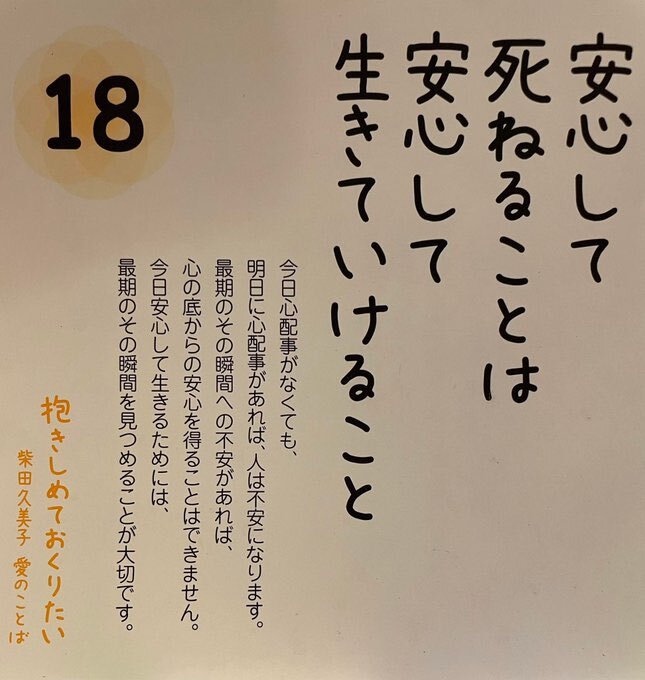 安心して
死ねることは
安心して
生きていけること
今日心配事がなくても、
明日に心配事があれば、人は不安になります。
最期のその瞬間への不安があれば、
心の底からの安心を得ることはできません。
今日安心して生きるためには、
最期のその瞬間を見つめることが大切です。
18
抱きしめておくりたい
柴田久美子 愛のことば